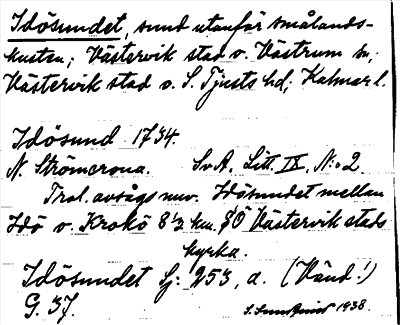 Idösundet, sund utanför Smålands-
kusten; Västervik stad o. Västrum sn;
Västervik stad o. S. Tjusts hd; Kalmar l.
Idösund 1734.
N. Strömcrona. Sv.A. Litt. IX, N:o 2.
Trol. avses nuv. Idösundet mellan
Idö o. Krokö 8 1/2 km. SO Västervik stads
kyrka.
Idösundet Sj: 253, a. (Vänd!)
G. 37. S. Sundquist 1938.